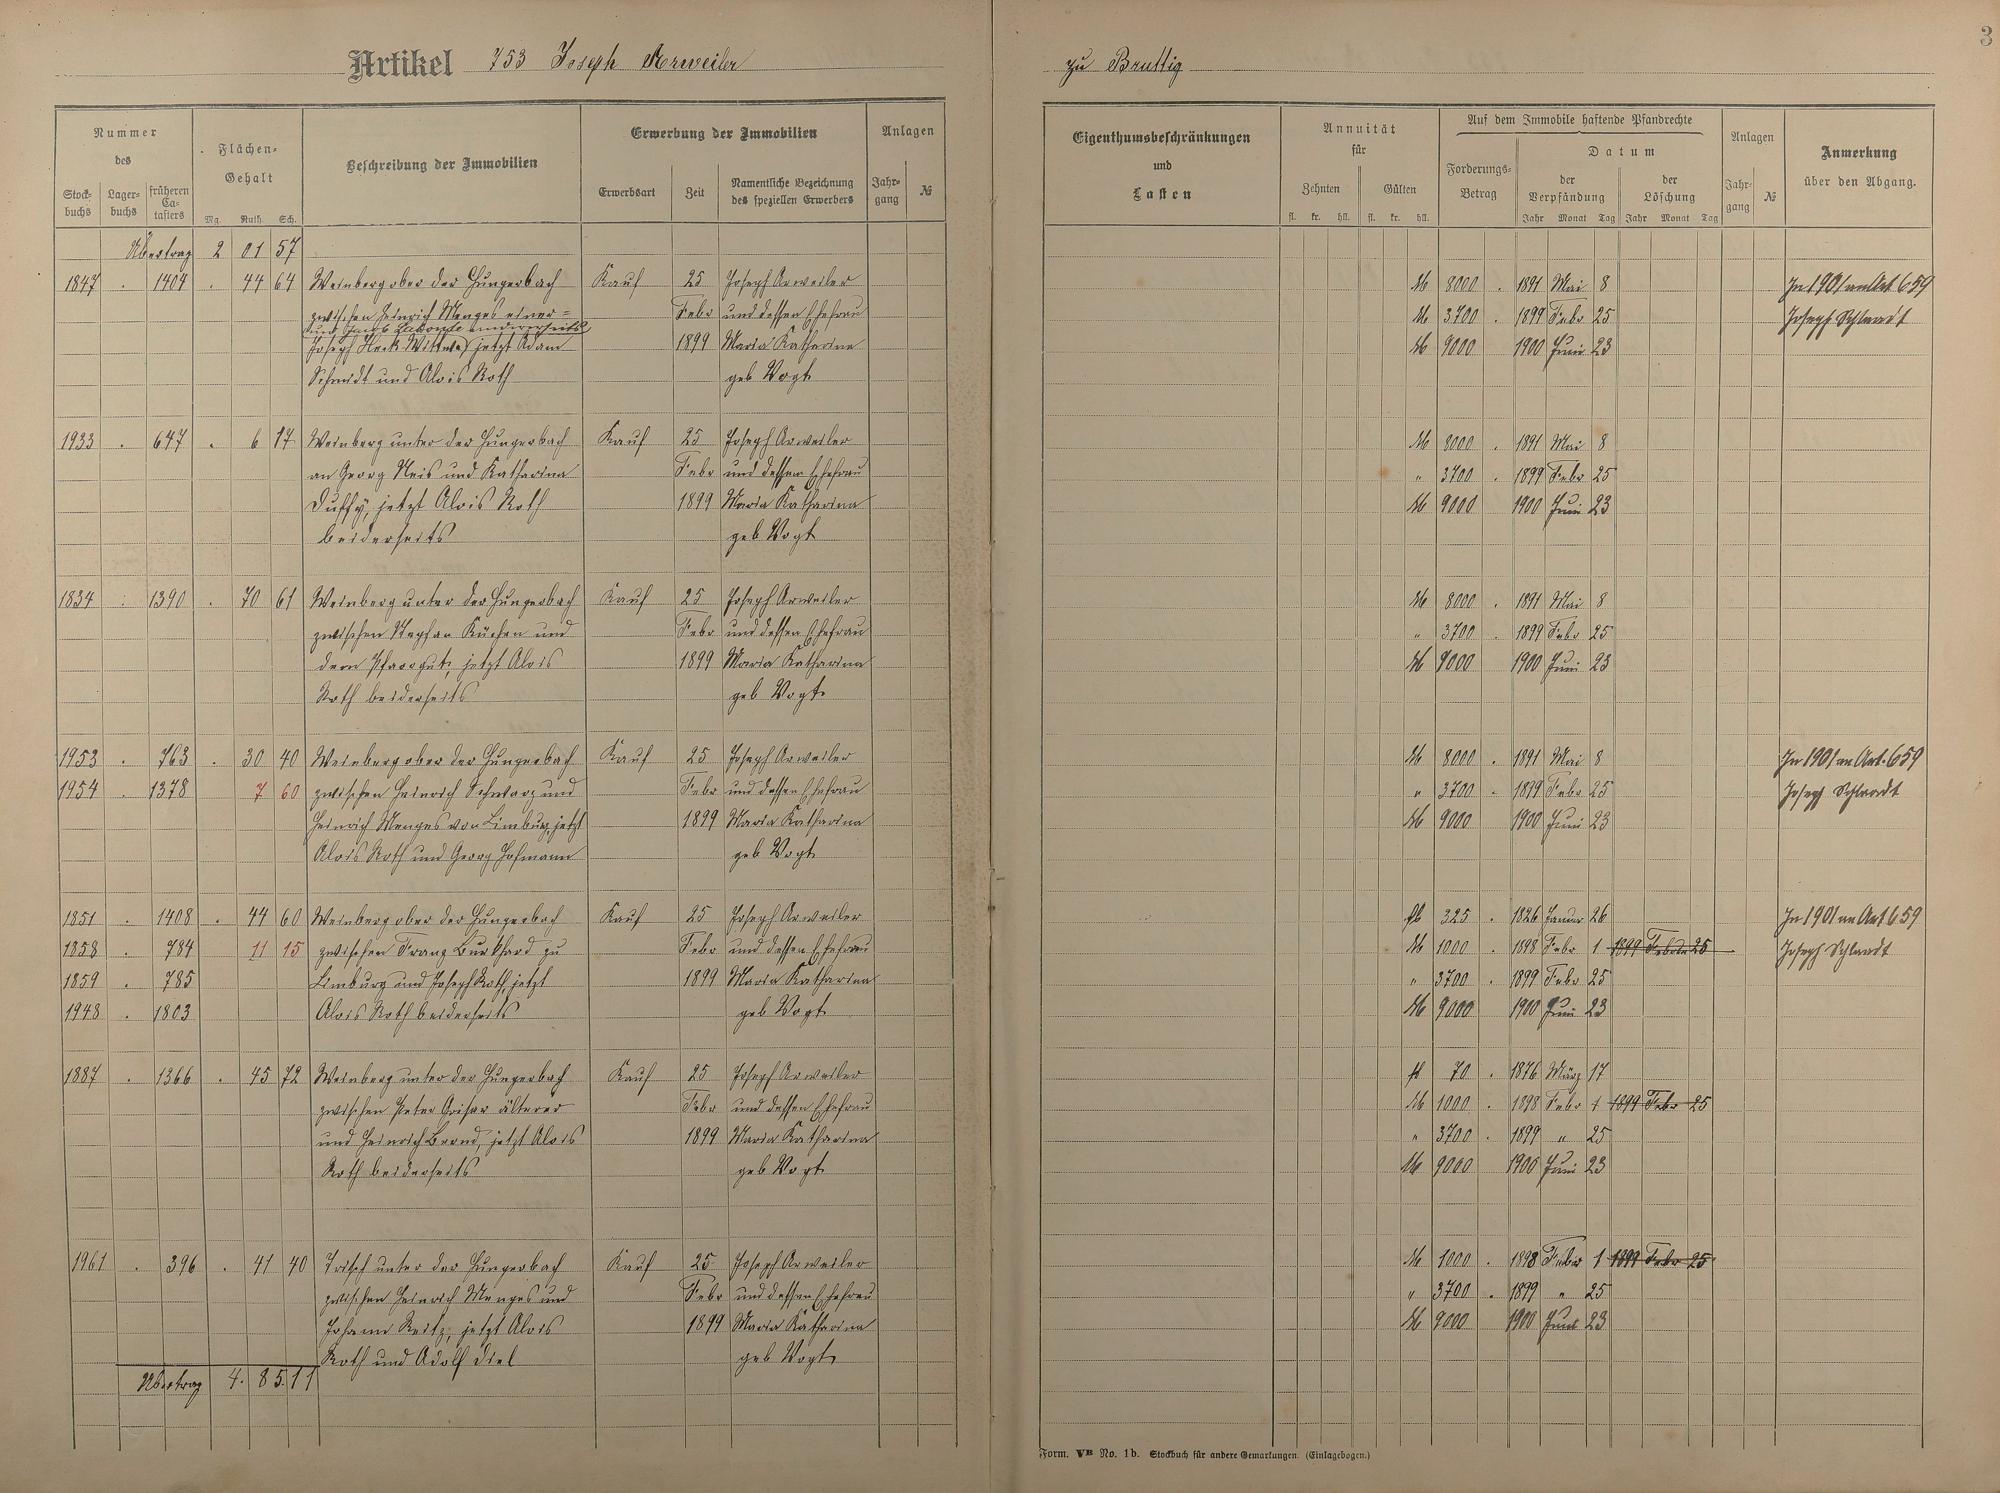 3
Artikel 753 Joseph Arweiler
zu Bruttig
Nummer
des
Stock-
buchs
Lager-
buchs
früheren
Ca-
tasters
Flächen-
Gehalt
Mg. Ruth. Sch.
Beschreibung der Immobilien
Erwerbung der Immobilien
Erwerbsart
Zeit
Namentliche Bezeichnung
des speziellen Erwerbers
Anlagen
Jahr-
gang
№
Übertrag 2 01 57
1847 . 1404 . 44 64 Weinberg ober der Hungerbach Kauf 25 Joseph Arweiler
zwischen Heinrich Menges einer= Febr und dessen Ehefrau
und Jacob andererseits
Joseph Heck Wittwe, jetzt Adam 1899 Maria Katharina
Schmidt und Alois Roth geb Vogt
1933 . 647 . 6 17 Weinberg unter der Hungerbach Kauf 25 Joseph Arweiler
an Georg Neis und Katharina Febr und dessen Ehefrau
Duffy, jetzt Alois Roth 1899 Maria Katharina
beiderseits geb Vogt
1834 . 1390 . 70 61 Weinberg unter der Hungerbach Kauf 25 Joseph Arweiler
zwischen Stephan Küchen und Febr und dessen Ehefrau
dem Pfarrgut, jetzt Alois 1899 Maria Katharina
Roth beiderseits geb Vogt
1953 . 763 . 30 40 Weinberg ober der Hungerbach Kauf 25 Joseph Arweiler
1954 . 1378 7 60 zwischen Heinrich Schwarz und Febr und dessen Ehefrau
Heinrich Menges von Limburg, jetzt 1899 Maria Katharina
Alois Roth und Georg Hofmann geb Vogt
1851 . 1408 . 44 60 Weinberg ober der Hungerbach Kauf 25 Joseph Arweiler
1858 . 784 11 15 zwischen Franz Burkhard zu Febr und dessen Ehefrau
1859 . 785 Limburg und Joseph Roth, jetzt 1899 Maria Katharina
1948 . 1803 Alois Roth beiderseits geb Vogt
1887 . 1366 . 45 72 Weinberg unter der Hungerbach Kauf 25 Joseph Arweiler
zwischen Peter Grisar älterer Febr und dessen Ehefrau
und Heinrich Brand, jetzt Alois 1899 Maria Katharina
Roth beiderseits geb Vogt
1961 . 396 . 41 40 Trisch unter der Hungerbach Kauf 25 Joseph Arweiler
zwischen Heinrich Menges und Febr und dessen Ehefrau
Johann Reitz, jetzt Alois 1899 Maria Katharina
Roth und Adolf Diel geb Vogt
Übertrag 4. 85. 11
Eigenthumsbeschränkungen
und
Lasten
Annuität
für
Zehnten
Gülten
fl. kr. hll. fl. kr. hll.
Auf dem Immobile haftende Pfandrechte
Forderungs-
Betrag
Datum
der
Verpfändung
der
Löschung
Jahr Monat Tag Jahr Monat Tag
Anlagen
Jahr-
gang
№
Anmerkung
über den Abgang.
M 8000 . 1891 Mai 8 In 1901 an Art 659
M 3700 . 1899 Febr 25 Joseph Schlaadt
M 9000 1900 Juni 23
M 8000 . 1891 Mai 8
" 3700 . 1899 Febr 25
M 9000 1900 Juni 23
M 8000 . 1891 Mai 8
" 3700 . 1899 Febr 25
M 9000 1900 Juni 23
M 8000 . 1891 Mai 8 In 1901 an Art. 659
" 3700 . 1899 Febr 25 Joseph Schlaadt
M 9000 1900 Juni 23
fl 325 . 1826 Januar 26 In 1901 an Art 659
M 1000 . 1898 Febr 1 1899 Febr 25 Joseph Schlaadt
" 3700 . 1899 Febr 25
M 9000 1900 Juni 23
fl 70 . 1876 März 17
M 1000 . 1898 Febr 1 1899 Febr 25
" 3700 . 1899 " 25
M 9000 1900 Juni 23
M 1000 . 1898 Febr 1 1899 Febr 25
" 3700 . 1899 " 25
M 9000 1900 Juni 23
Form. VB No. 1b. Stockbuch für andere Gemarkungen. (Einlagebogen.)